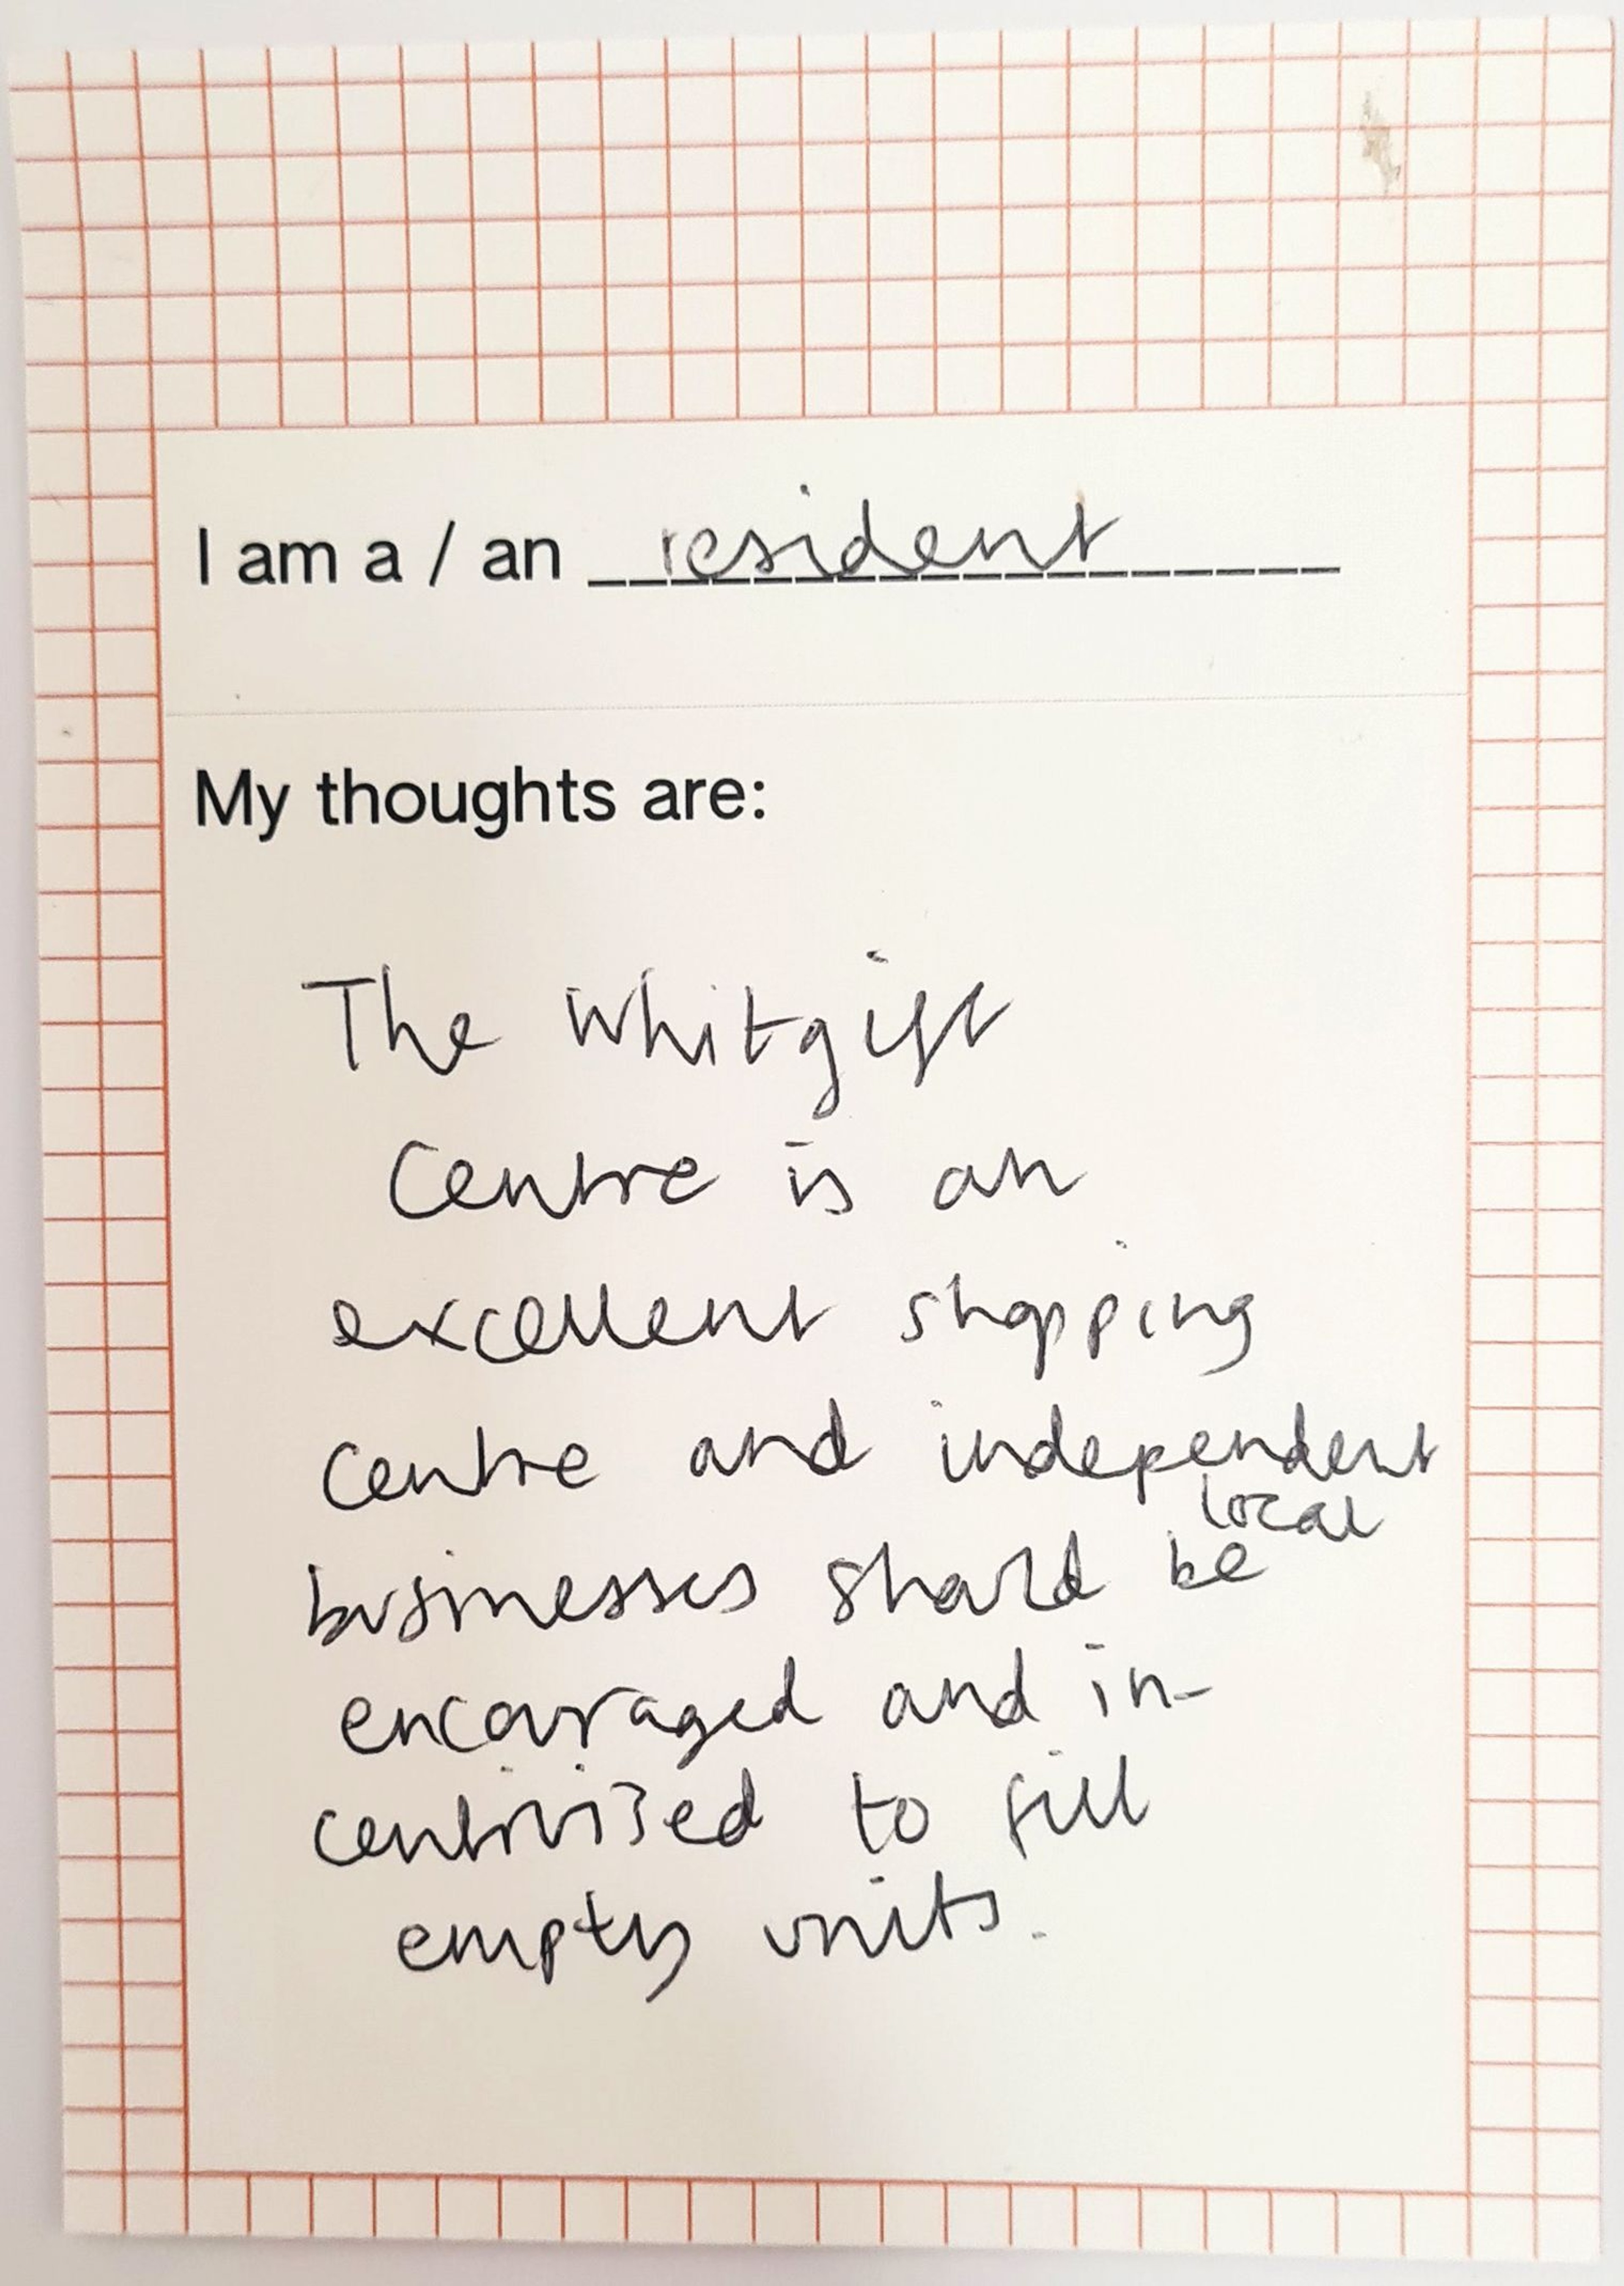 I am a / an resident
My thoughts are:
The Whitgift
Centre is an
excellent shopping
centre and independent
local
businesses should be
encouraged and in-
centivized to fill
empty units.